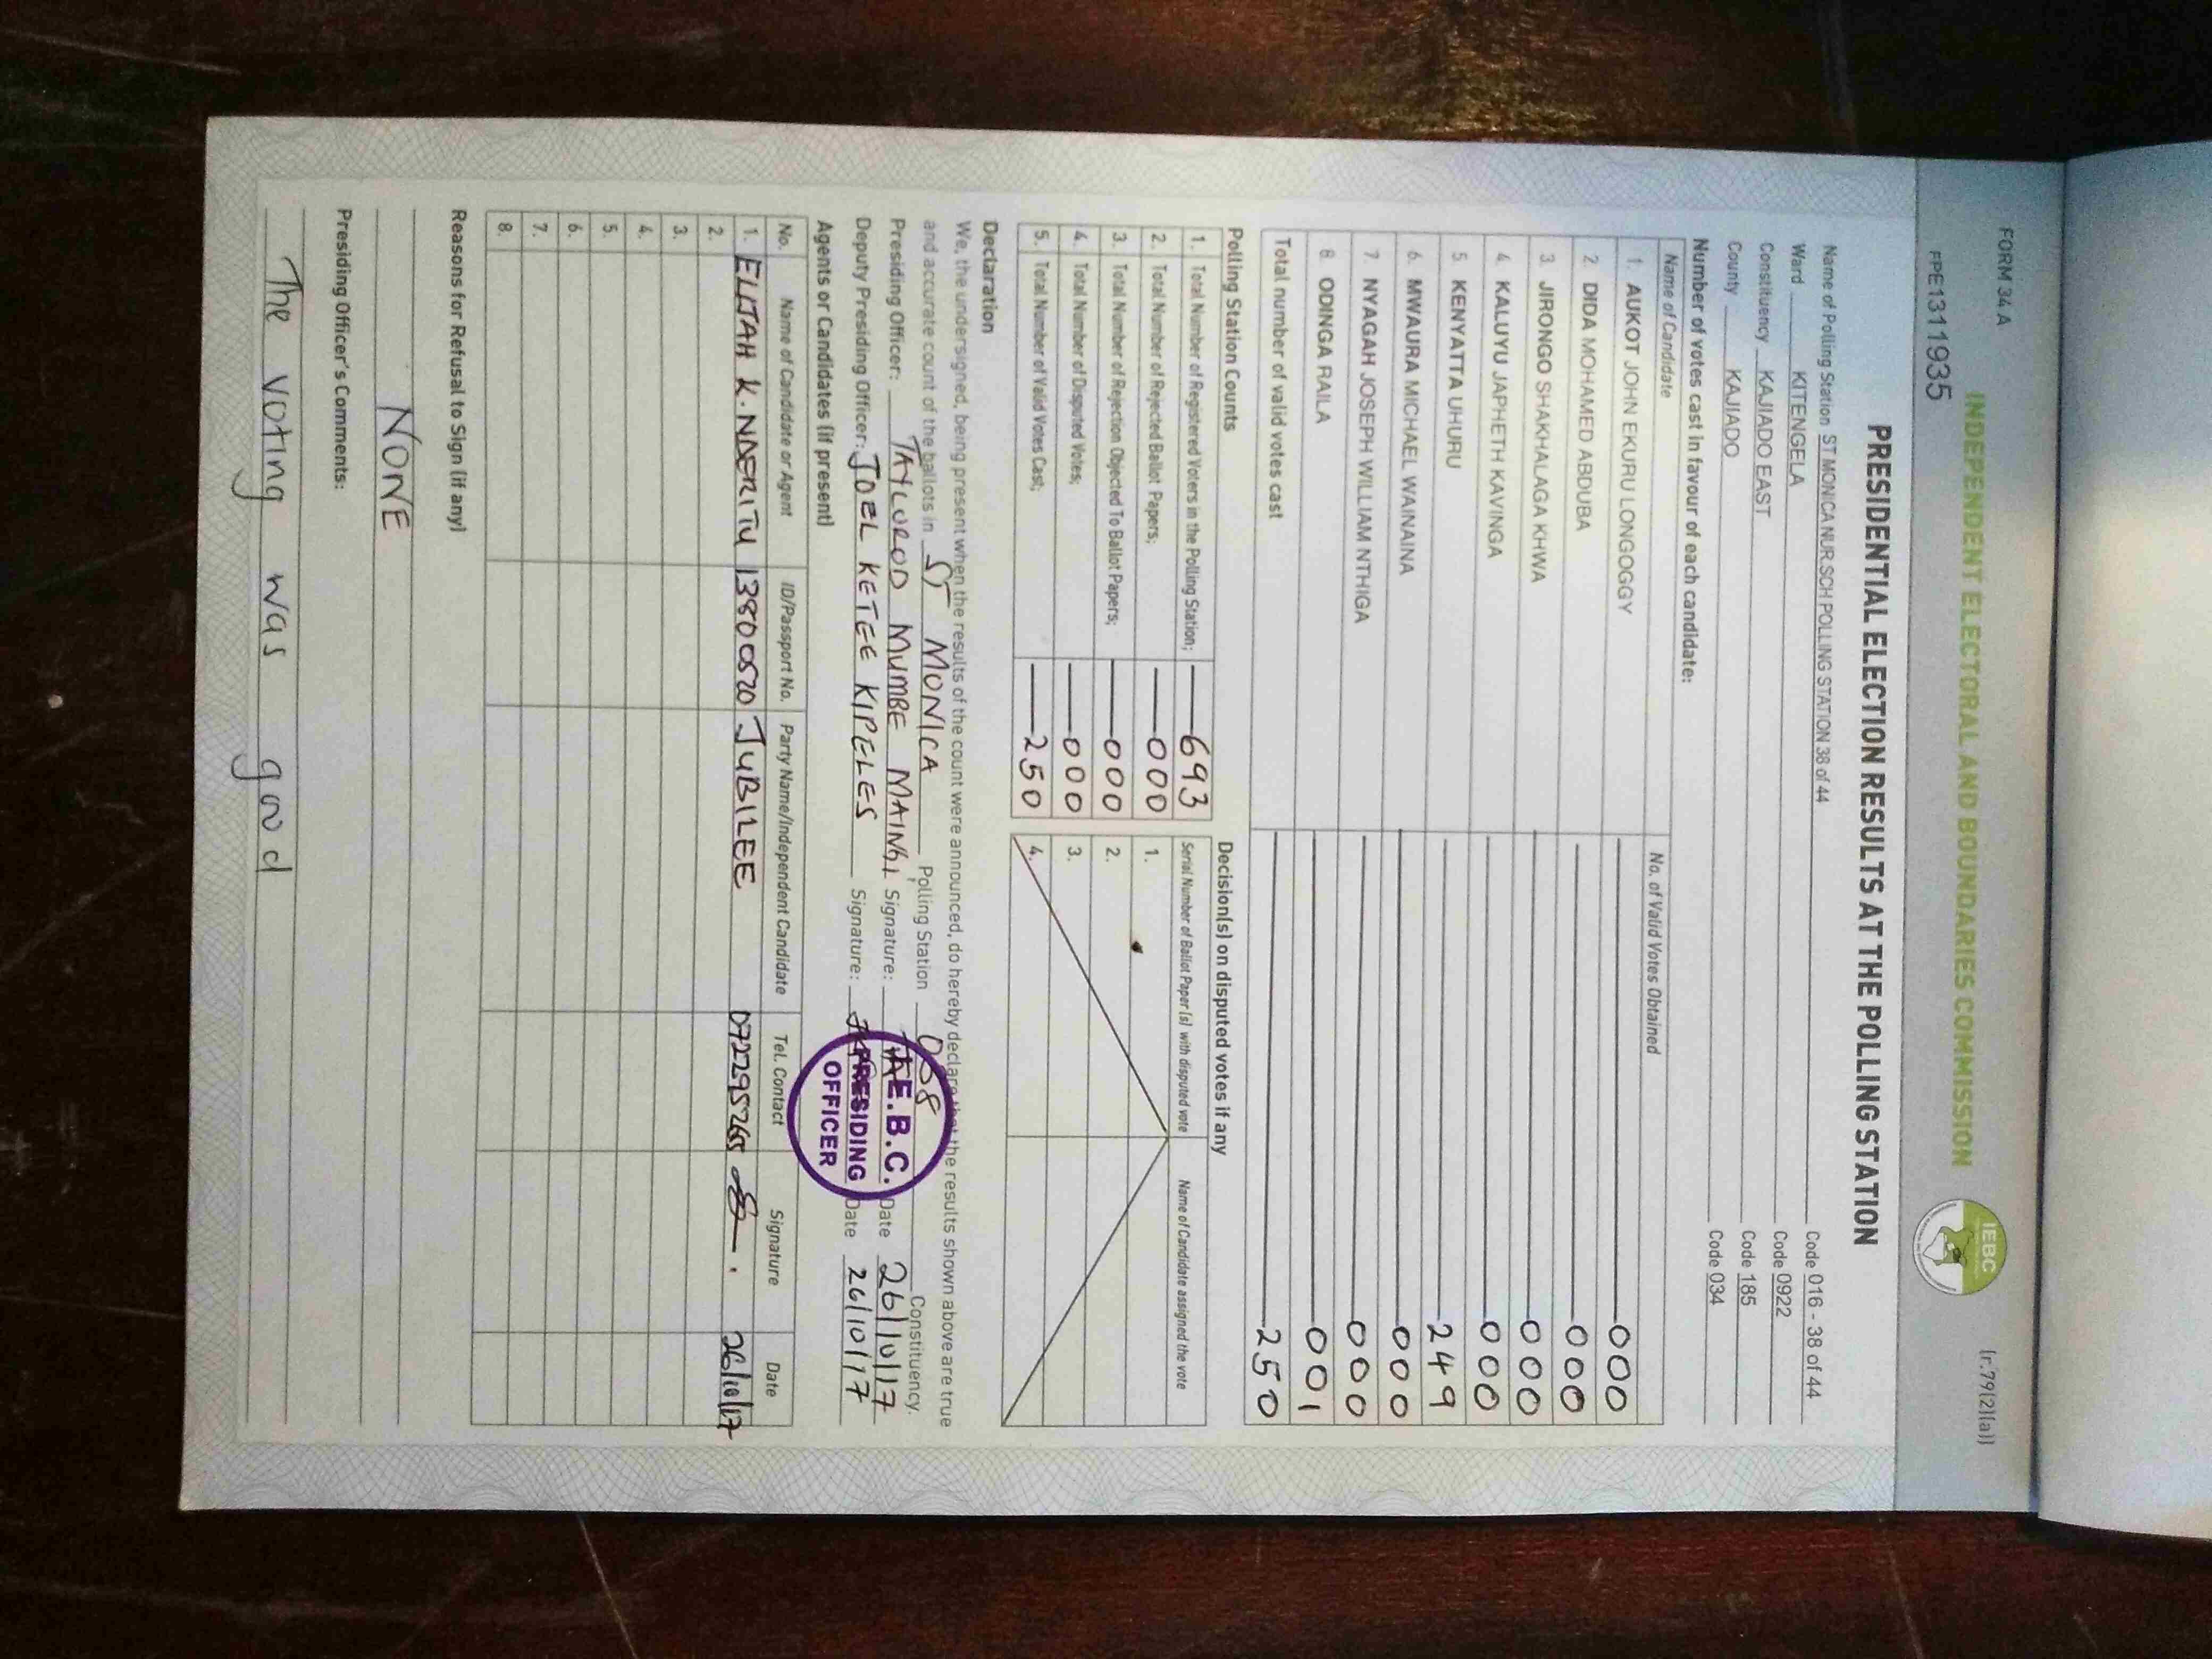 FORM 34 A
(r.79(2)(a))
INDEPENDENT ELECTORAL AND BOUNDARIES COMMISSION
IEBC
FPE1311935
PRESIDENTIAL ELECTION RESULTS AT THE POLLING STATION
Name of Polling Station ST MONICA NUR.SCH POLLING STATION 38 of 44 Code 016 - 38 of 44
Ward KITENGELA Code 0922
Constituency KAJIADO EAST Code 185
County KAJIADO Code 034
Number of votes cast in favour of each candidate:
Name of Candidate No. of Valid Votes Obtained
1. AUKOT JOHN EKURU LONGOGGY 000
2. DIDA MOHAMED ABDUBA 000
3. JIRONGO SHAKHALAGA KHWA 000
4. KALUYU JAPHETH KAVINGA 000
5 KENYATTA UHURU 249
6. MWAURA MICHAEL WAINAINA 000
7. NYAGAH JOSEPH WILLIAM NTHIGA 000
8 ODINGA RAILA 001
Total number of valid votes cast 250
Polling Station Counts
1. Total Number of Registered Voters in the Polling Station; 693
2. Total Number of Rejected Ballot Papers; 000
3. Total Number of Rejection Objected To Ballot Papers; 000
4. Total Number of Disputed Votes; 000
5. Total Number of Valid Votes Cast; 250
Decision(s) on disputed votes if any
Serial Number of Ballot Paper (s) with disputed vote Name of Candidate assigned the vote
1.
2.
3.
4.
Declaration
We, the undersigned, being present when the results of the count were announced, do hereby declare that the results shown above are true
and accurate count of the ballots in ST MONICA Polling Station 038 Constituency.
Presiding Officer: TAYLOROD MUMBE MAINGI Signature: Date 26/10/17
Deputy Presiding Officer: JOEL KETEE KIPELES Signature: Date 26/10/17
I.E.B.C.
PRESIDING
OFFICER
Agents or Candidates (if present)
No. Name of Candidate or Agent ID/Passport No. Party Name/Independent Candidate Tel. Contact Signature Date
1. ELIJAH K. NDERITU 13800520 JUBILEE 0722295265 26/10/17
2.
3.
4.
5.
6.
7.
8.
Reasons for Refusal to Sign (if any)
NONE
Presiding Officer's Comments:
The voting was good